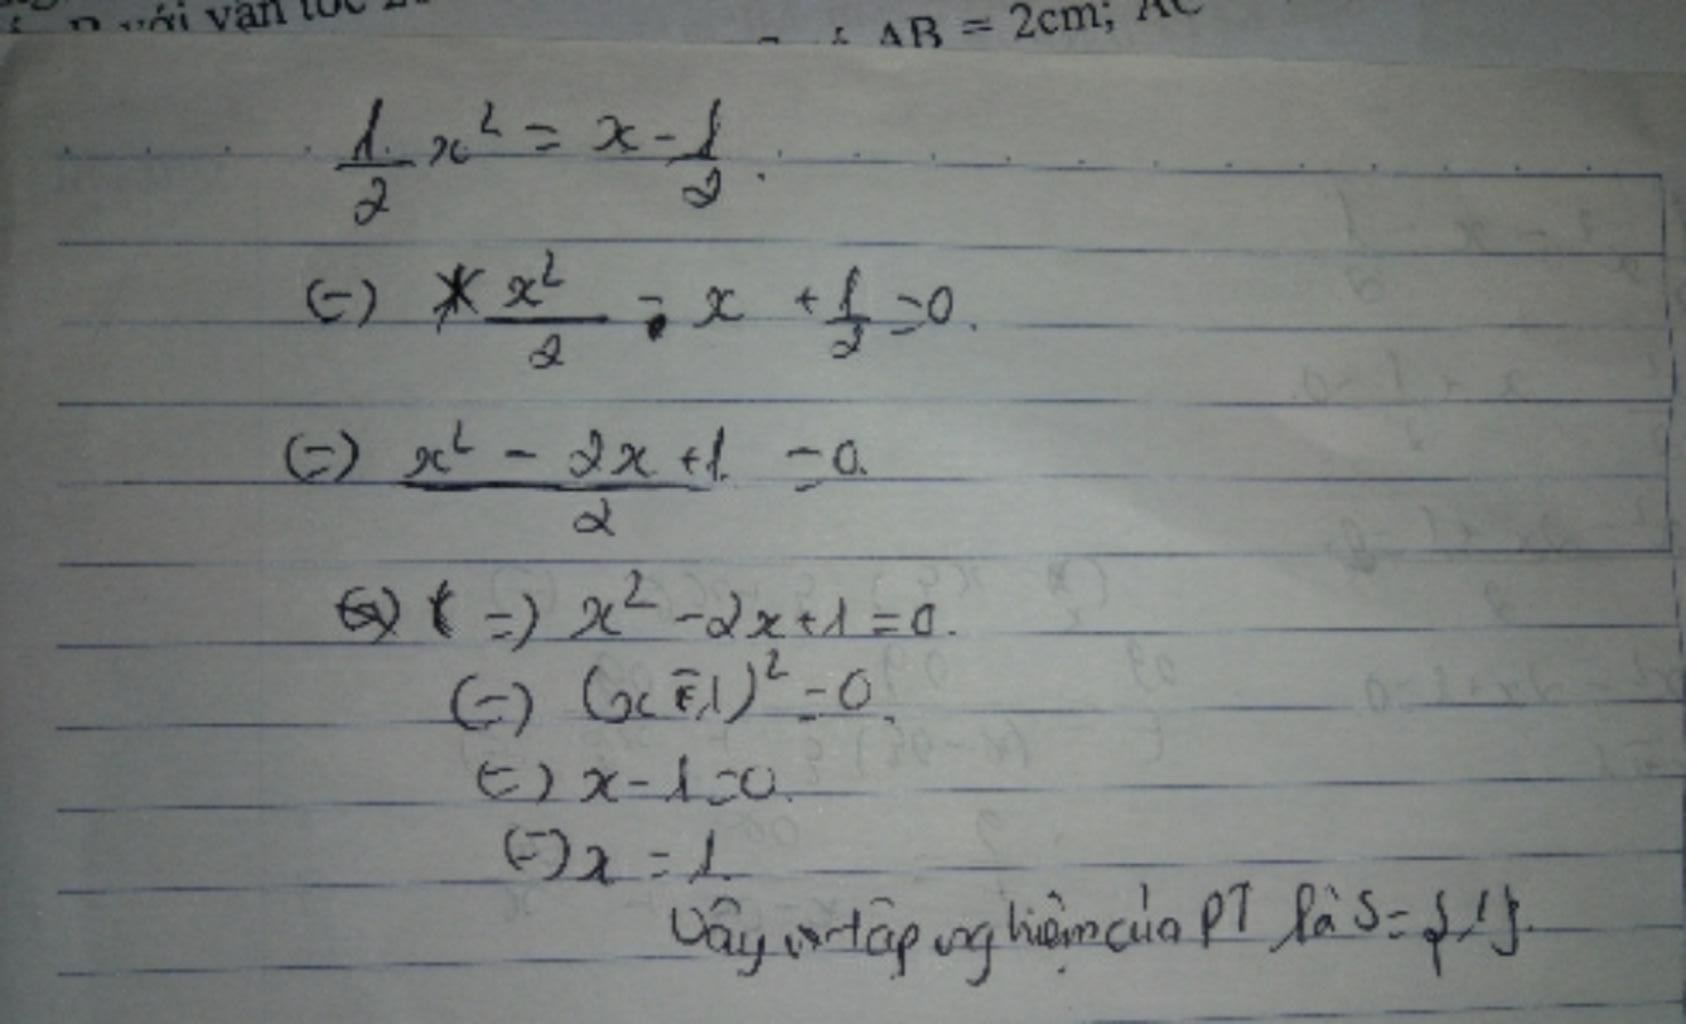 với vận tốc
AB = 2cm; AC
1/2 x² = x - 1/2.
(=) x²/2 - x + 1/2 = 0.
(=) (x² - 2x + 1)/2 = 0.
(=) x² - 2x + 1 = 0.
(=) (x - 1)² = 0.
(=) x - 1 = 0.
(=) x = 1.
Vậy tập nghiệm của PT là S = {1}.